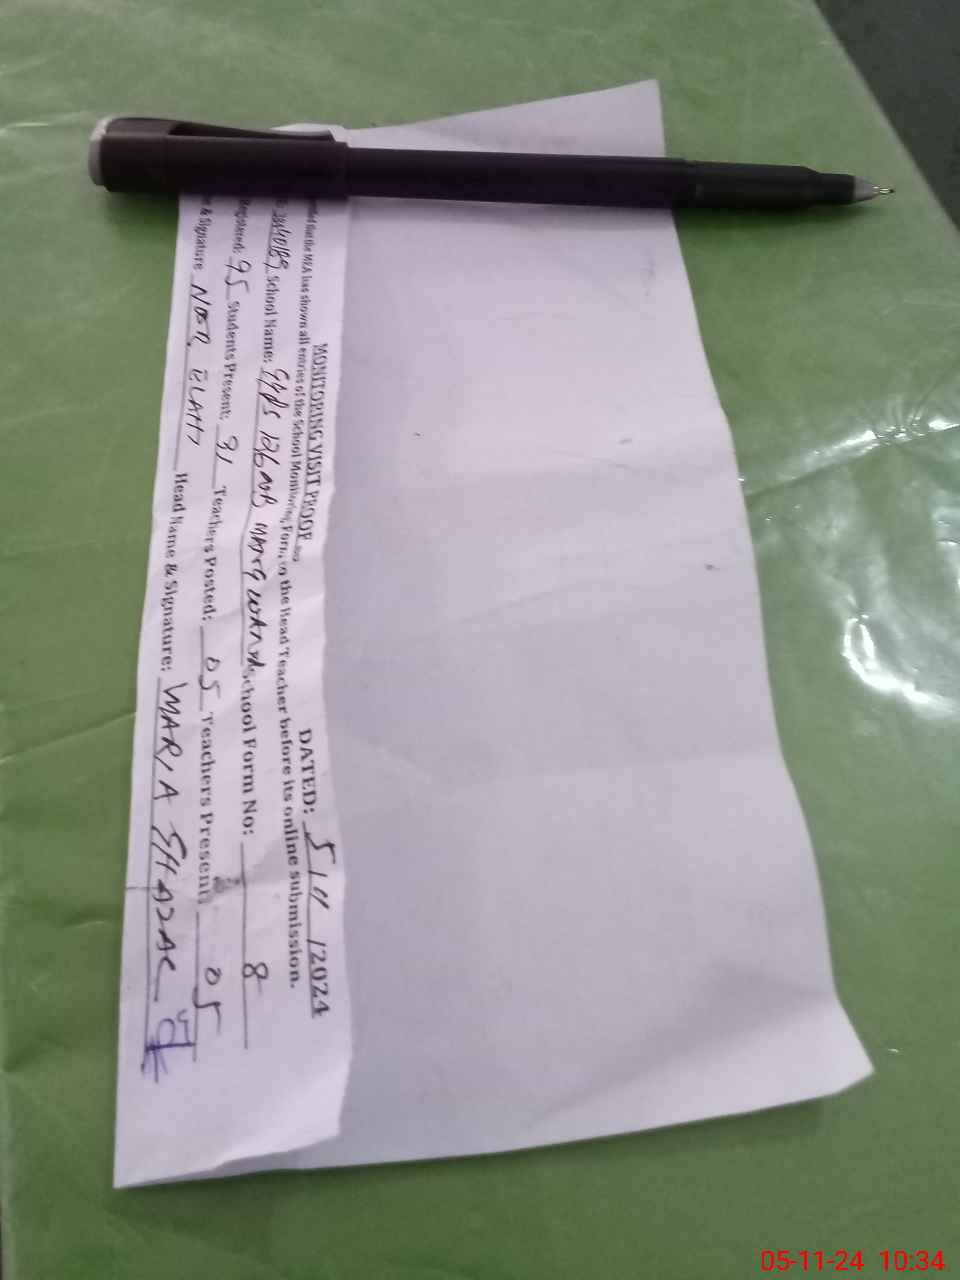 MONITORING VISIT PROOF DATED: 5/11/2024
that the MEA has shown all entries of the School Monitoring Form to the Head Teacher before its online submission.
School Name: School Form No: 8
Registered: 95 Students Present: 91 Teachers Posted: 05 Teachers Present: 05
& Signature NOOR ELAHI Head Name & Signature: MARIA
05-11-24 10:34